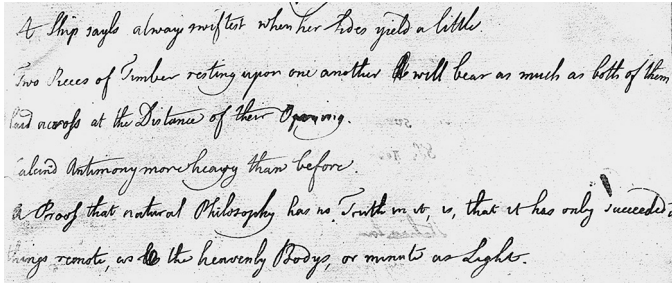 A Ship sayls always swiftest when her sides yield a little.
Two Pieces of Timber resting upon one another will bear as much as both of them
laid across at the Distance of their Opening.
Calcin'd Antimony more heavy than before.
A Proof that natural Philosophy has no Truth in it, is, that it has only succeeded in
things remote, as the heavenly Bodys, or minute as Light.